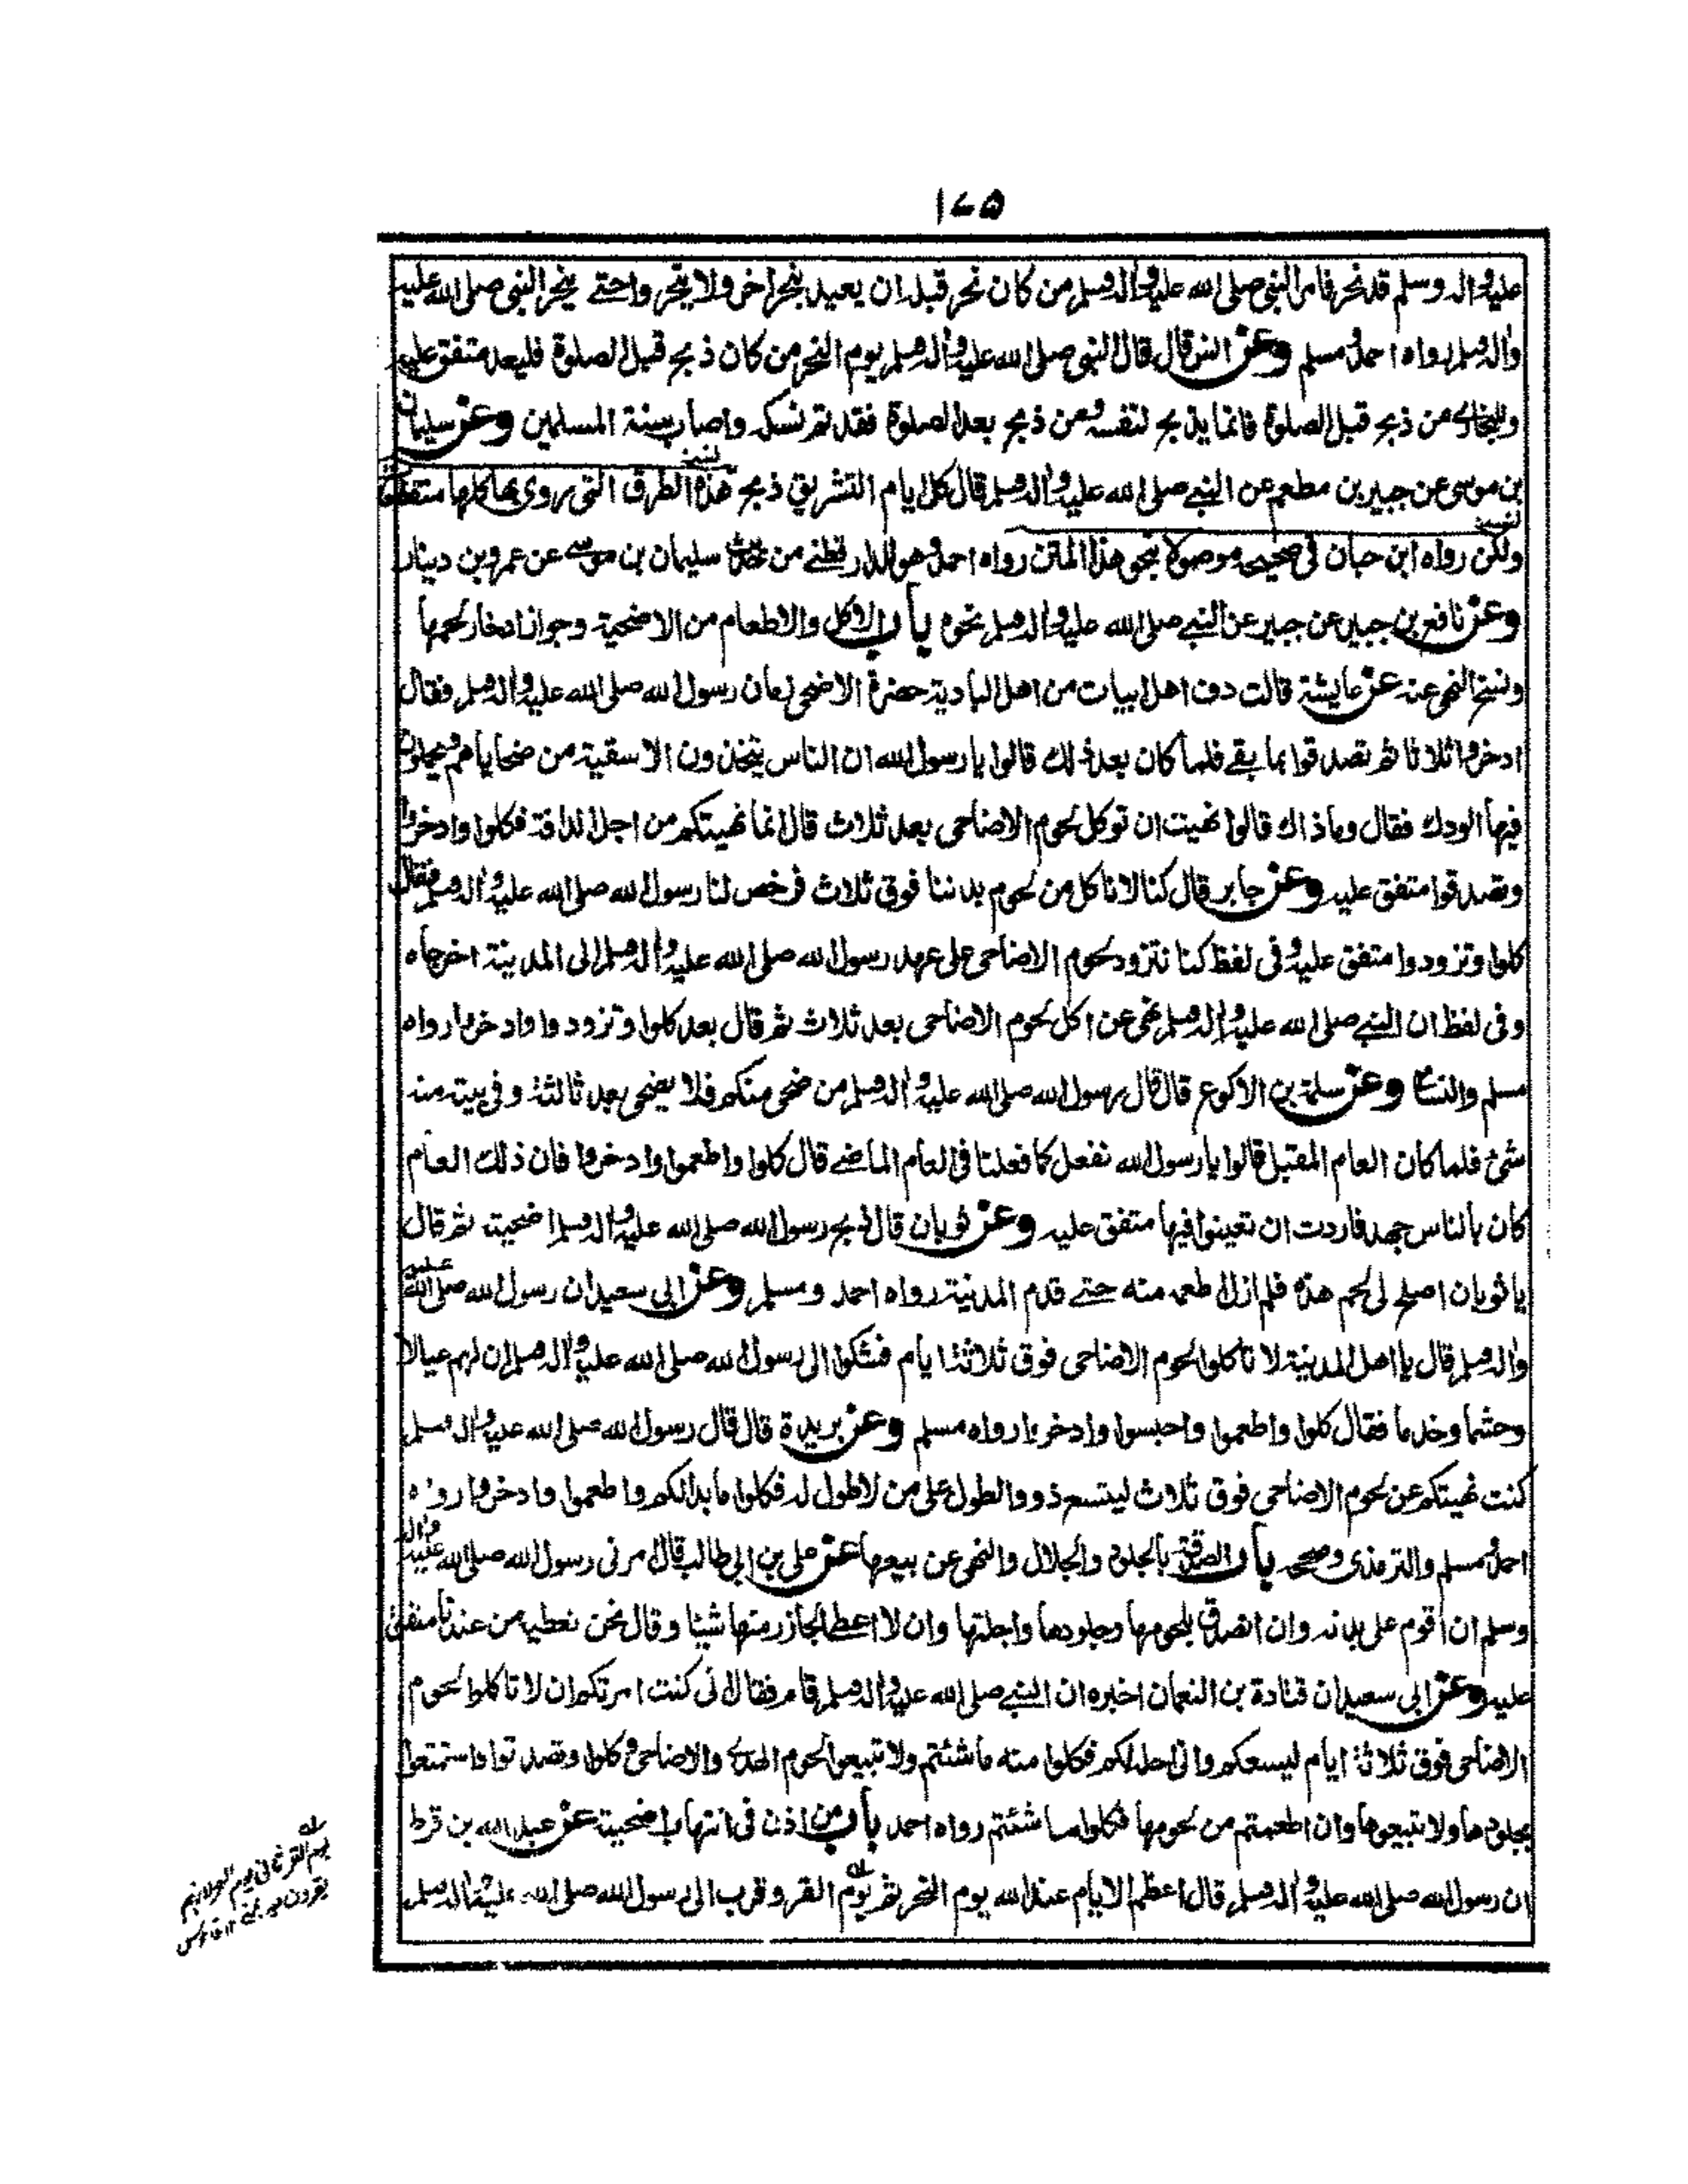 ١٧٥
عليه واله وسلم قد نحر فامر النبي صلى الله عليه واله وسلم من كان نحر قبله ان يعيد بنحر اخر ولا ينحروا حتے ينحر النبي صلى الله عليه
واله وسلم رواه احمد ومسلم وعن انس قال قال النبي صلى الله عليه واله وسلم يوم النحر من كان ذبح قبل الصلوة فليعد متفق عليه
وللبخاري من ذبح قبل الصلوة فانما يذبح لنفسه ومن ذبح بعد الصلوة فقد تم نسكه واصاب سنة المسلمين وعن سليمان
بن موسى عن جبير بن مطعم عن النبے صلى الله عليه واله وسلم قال كل ايام التشريق ذبح هذه الطرق التى روى بها كلها منقطعة
ولكن رواه ابن حبان فى صحيحه موصولا بنحو هذا المتن رواه احمد وهو للدارقطنے من سليمان بن موسے عن عمرو بن دينار
وعن نافع بن جبير عن جبير عن النبے صلى الله عليه واله وسلم نحوه باب الاكل والاطعام من الاضحية وجواز ادخار لحمها
ونسخ النهى عنه عن عايشة قالت دف اهل ابيات من اهل البادية حضرة الاضحى زمان رسول الله صلى الله عليه واله وسلم فقال
ادخروا ثلاثا ثم تصدقوا بما بقے فلما كان بعد ذلك قالوا يا رسول الله ان الناس يتخذون الاسقية من ضحاياهم ويجملون
فيها الودك فقال وما ذاك قالوا نهيت ان توكل لحوم الاضاحى بعد ثلاث قال انما نهيتكم من اجل الدافة فكلوا وادخروا
وتصدقوا متفق عليه وعن جابر قال كنا لا ناكل من لحوم بدننا فوق ثلاث فرخص لنا رسول الله صلى الله عليه واله وسلم فقال
كلوا وتزودوا متفق عليه وفى لفظ كنا نتزود لحوم الاضاحى على عهد رسول الله صلى الله عليه واله وسلم الى المدينة اخرجاه
وفى لفظ ان النبے صلى الله عليه واله وسلم نهى عن اكل لحوم الاضاحى بعد ثلاث ثم قال بعد كلوا وتزودوا وادخروا رواه
مسلم والنسائے وعن سلمة بن الاكوع قال قال رسول الله صلى الله عليه واله وسلم من ضحى منكم فلا يضحى بعد ثالثة وفى بيته منه
شئ فلما كان العام المقبل قالوا يا رسول الله نفعل كما فعلنا فى العام الماضے قال كلوا واطعموا وادخروا فان ذلك العام
كان بالناس جهد فاردت ان تعينوا فيها متفق عليه وعن ثوبان قال ذبح رسول الله صلى الله عليه واله وسلم اضحيته ثم قال
يا ثوبان اصلح لى لحم هذه فلم ازل اطعمه منه حتے قدم المدينة رواه احمد ومسلم وعن ابى سعيد ان رسول الله صلى الله عليه
واله وسلم قال يا اهل المدينة لا تاكلوا لحوم الاضاحى فوق ثلاثة ايام فشكوا الى رسول الله صلى الله عليه واله وسلم ان لهم عيالا
وحشما وخدما فقال كلوا واطعموا واحبسوا وادخروا رواه مسلم وعن بريدة قال قال رسول الله صلى الله عليه واله وسلم
كنت نهيتكم عن لحوم الاضاحى فوق ثلاث ليتسع ذووالطول على من لا طول له فكلوا ما بدا لكم واطعموا وادخروا رواه
احمد ومسلم والترمذى وصححه باب الصدقة بالجلود والجلال والنهى عن بيعها عن على بن ابى طالب قال امرنى رسول الله صلى الله عليه واله
وسلم ان اقوم على بدنه وان اتصدق بلحومها وجلودها واجلتها وان لا اعطے الجازر منها شيئا وقال نحن نعطيه من عندنا متفق
عليه وعن ابى سعيد ان قتادة بن النعمان اخبره ان النبے صلى الله عليه واله وسلم قام فقال انى كنت امرتكم ان لا تاكلوا لحوم
الاضاحى فوق ثلاثة ايام ليسعكم وانى احله لكم فكلوا منه ما شئتم ولا تبيعوا لحوم الهدى والاضاحى وكلوا وتصدقوا واستمتعوا
بجلودها ولا تبيعوها وان اطعمتم من لحومها فكلوا ما شئتم رواه احمد باب من اذن فى انتهاب اضحيته عن عبدالله بن قرط
ان رسول الله صلى الله عليه واله وسلم قال اعظم الايام عند الله يوم النحر ثم يوم القر وقرب الى رسول الله صلى الله عليه واله وسلم
يوم القر ثانى يوم النحر لانهم
يقرون فيه بمنى ١٢ قاموس